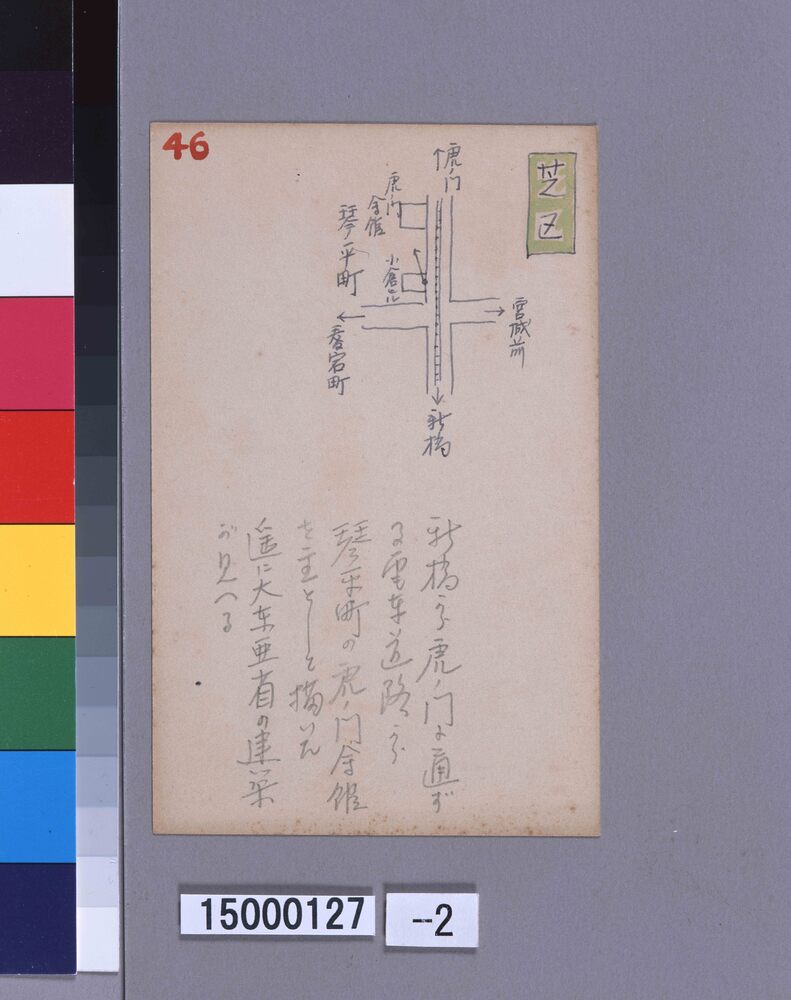 46
芝区
↑虎ノ門
虎ノ門
会館
琴平町
小倉ビル
宮城前
愛宕町
新橋
新橋から虎ノ門に通ず
る電車道路から
琴平町の虎ノ門会館
を主として描いた
遥に大東亜省の建築
が見へる
15000127
--2